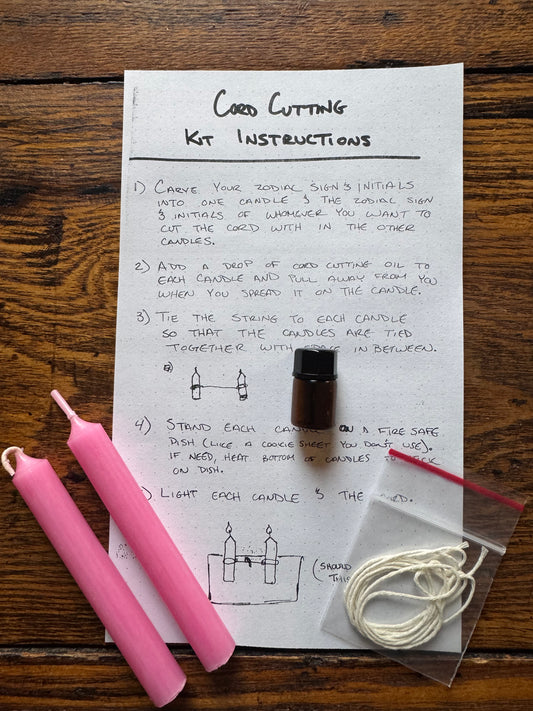 CORD CUTTING
KIT INSTRUCTIONS
1) CARVE YOUR ZODIAC SIGN & INITIALS
INTO ONE CANDLE & THE ZODIAC SIGN
& INITIALS OF WHOMEVER YOU WANT TO
CUT THE CORD WITH IN THE OTHER
CANDLES.
2) ADD A DROP OF CORD CUTTING OIL TO
EACH CANDLE AND PULL AWAY FROM YOU
WHEN YOU SPREAD IT ON THE CANDLE.
3) TIE THE STRING TO EACH CANDLE
SO THAT THE CANDLES ARE TIED
TOGETHER WITH IN BETWEEN.
4) STAND EACH ON A FIRE SAFE
DISH (LIKE A COOKIE SHEET YOU DON'T USE).
IF NEED, HEAT BOTTOM OF CANDLES TO
ON DISH.
) LIGHT EACH CANDLE & THE
(SHOULD
THIS